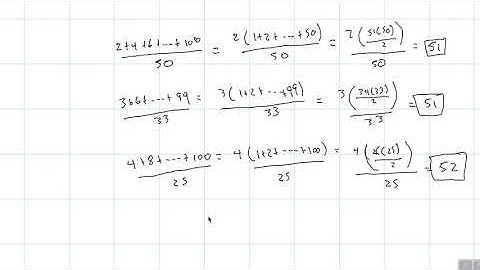 (2+4+6+...+100)/50 = (2(1+2+...+50))/50 = (2(51(50)/2))/50 = 51
(3+6+...+99)/33 = (3(1+2+...+99))/33 = (3(34(33)/2))/33 = 51
(4+8+...+100)/25 = (4(1+2+...+100))/25 = (4(26(25)/2))/25 = 52